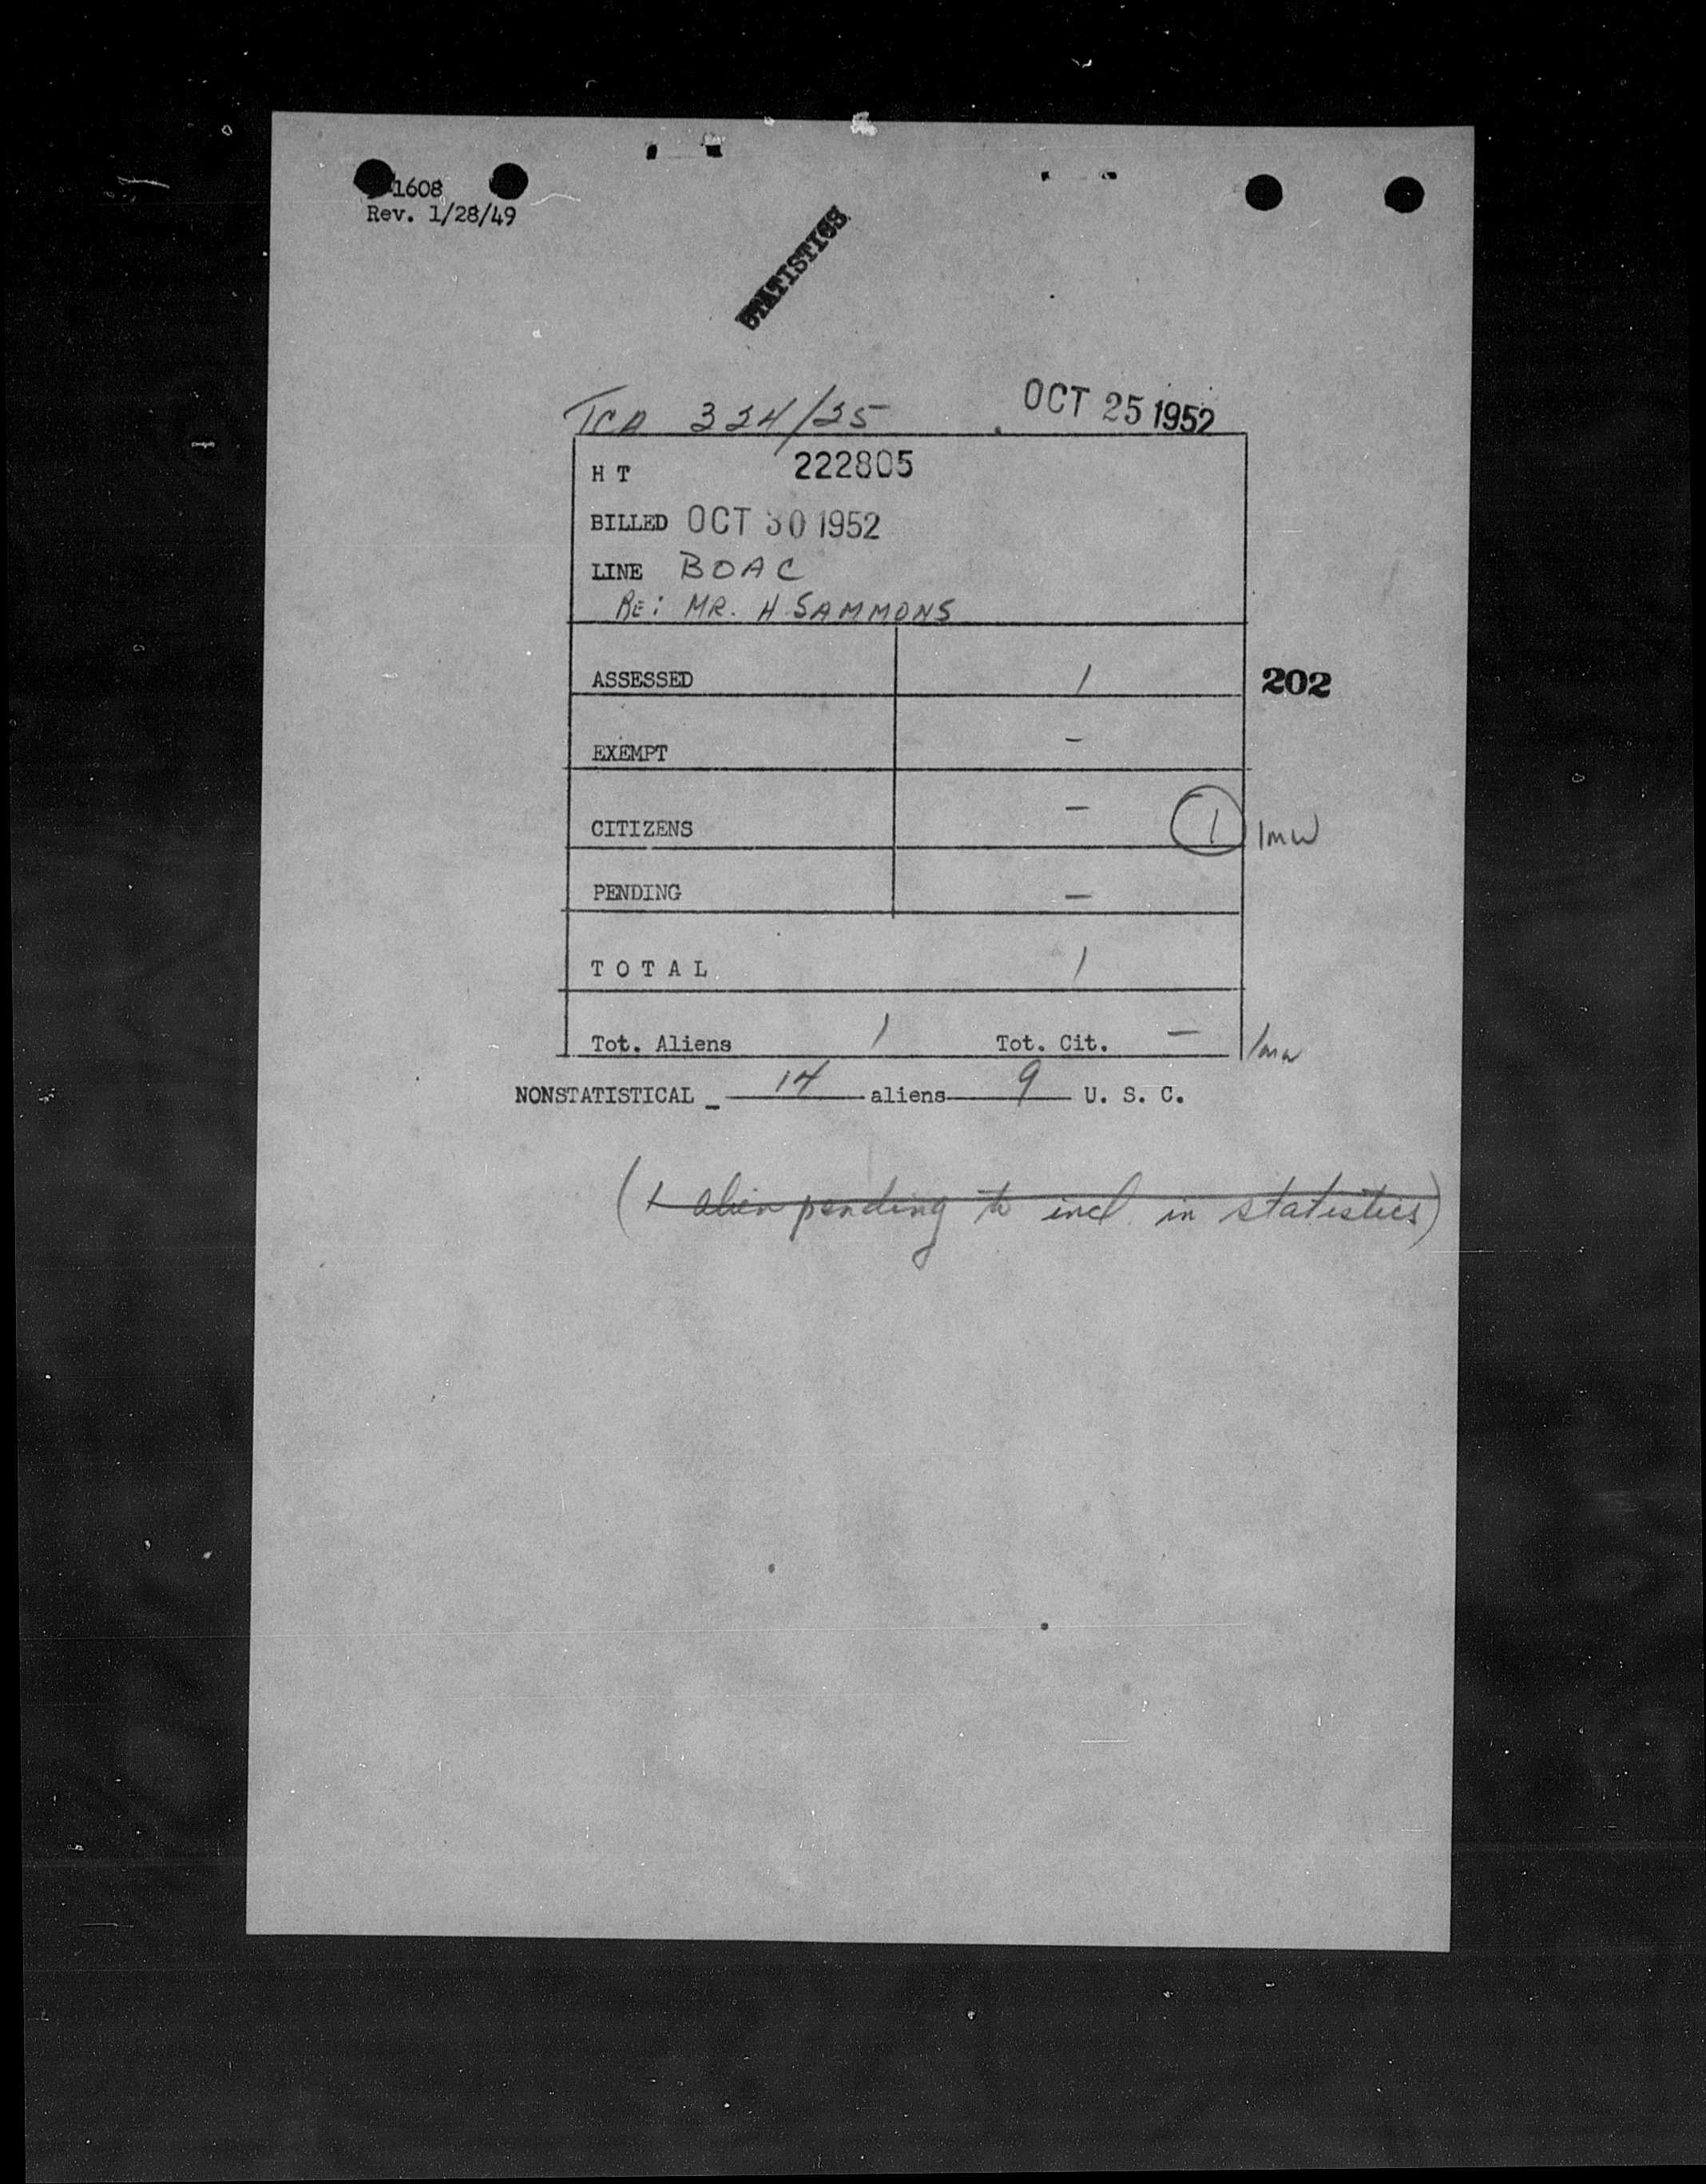 1608
Rev. 1/28/49
STATISTICS
TCA 324/25 OCT 25 1952
H T 222805
BILLED OCT 30 1952
LINE BOAC
RE: MR. H SAMMONS
ASSESSED 1 202
EXEMPT -
CITIZENS - 1 1mw
PENDING -
TOTAL 1
Tot. Aliens 1 Tot. Cit. - 1mw
NONSTATISTICAL - 14 aliens 9 U. S. C.
(1 alien pending to incl. in statistics)